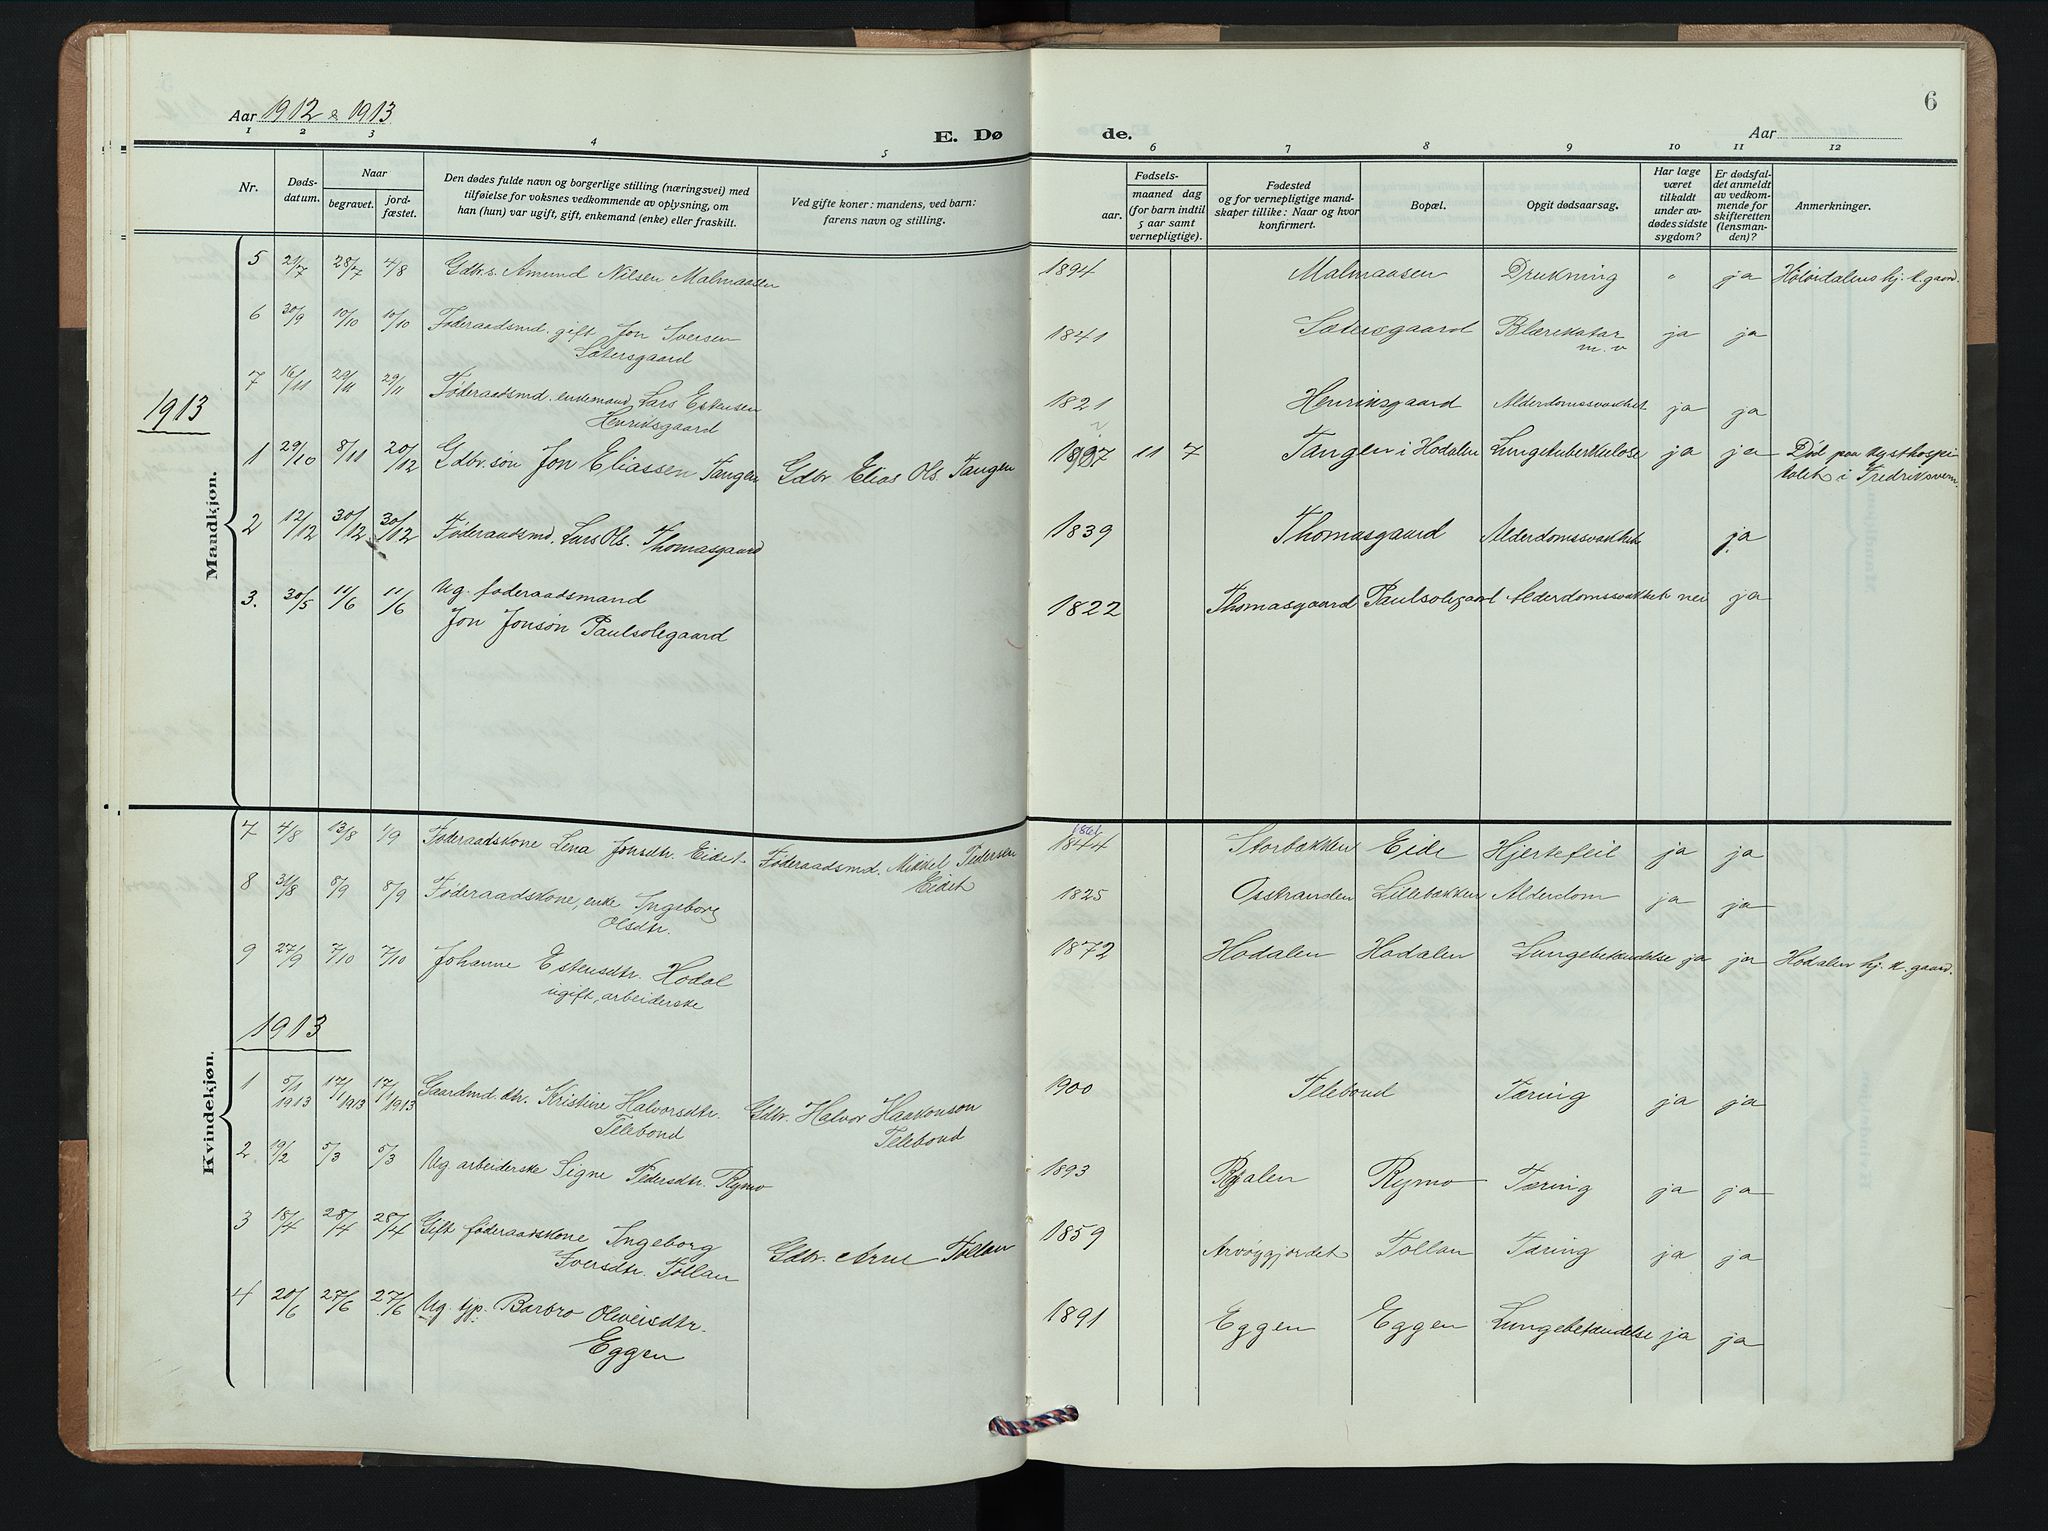 6
Aar 1912 & 1913
E. Dø de.
Aar
1 2 3 4 5 6 7 8 9 10 11 12
Nr.
Døds-
datum.
Naar
begravet.
jord-
fæstet.
Den dødes fulde navn og borgerlige stilling (næringsvei) med
tilføielse for voksnes vedkommende av oplysning, om
han (hun) var ugift, gift, enkemand (enke) eller fraskilt.
Ved gifte koner: mandens, ved barn:
farens navn og stilling.
Fødsels-
aar.
maaned dag
(for barn indtil
5 aar samt
vernepligtige).
Fødested
og for vernepligtige mand-
skaper tillike: Naar og hvor
konfirmert.
Bopæl.
Opgit dødsaarsag.
Har læge
været
tilkaldt
under av-
dødes sidste
sygdom?
Er dødsfal-
det anmeldt
av vedkom-
mende for
skifteretten
(lensman-
den)?
Anmerkninger.
Mandkjøn.
5 21/7 28/7 4/8 Gdbr.s. Amund Nilsen Malmaasen 1894 Malmaasen Drukning " ja Holøidalens hj. k. gaard.
6 30/9 10/10 10/10 Føderaadsmd. gift Jon Iversen
Sætersgaard 1841 Sætersgaard Blærekatar
m. v ja ja
7 16/11 29/11 29/11 Føderaadsmd. enkemand Lars Estensen
Henriksgaard 1821 Henriksgaard Alderdomssvakhet ja ja
1913
1 29/10 8/11 20/12 Gdbr.søn Jon Eliassen Tangen Gdbr Elias Ols. Tangen 1897 11 7 Tangen i Hodalen Lungetuberkulose ja ja Død paa kysthospi-
talet i Fredriksvern.
2 12/12 30/12 30/12 Føderaadsmd. Lars Ols. Thomasgaard 1839 Thomasgaard Alderdomssvakhet ja
3. 30/5 11/6 11/6 Ug. føderaadsmand
Jon Jonsøn Paulsølegaard 1822 Thomasgaard Paulsølegaard Alderdomssvakhet nei ja
Kvindekjøn.
7 4/8 13/8 1/9 Føderaadskone Lena Jonsdtr. Eidet Føderaadsmd. Mikkel Pedersen
Eidet 1844 1861 Storbækken Eide Hjertefeil ja ja
8 31/8 8/9 8/9 Føderaadskone, enke Ingeborg
Olsdtr. 1825 Osstranden Lillebækken Alderdom ja ja
9 27/9 7/10 7/10 Johanne Estensdtr. Hodal
ugift, arbeiderske 1872 Hodalen Hodalen Lungebetændelse ja ja Hodalen hj. k. gaard.
1913
1 5/1 1913 17/1 1913 17/1 1913 Gaardmd. dtr. Kristine Halvorsdtr.
Telebond Gdbr. Halvor Haakonson
Telebond 1900 Telebond Tæring ja ja
2 19/2 5/3 5/3 Ug. arbeiderske Signe Pedersdtr. Rymo 1893 Rymo Tæring ja ja
3 18/4 28/4 28/4 Gift føderaadskone Ingeborg
Iversdtr. Tollan Gdbr. Arne Tollan 1859 Tollan Tæring ja ja
4 20/6 27/6 27/6 Ug. tjp. Barbro Oliversdtr.
Eggen 1891 Eggen Eggen Lungebetændelse ja ja